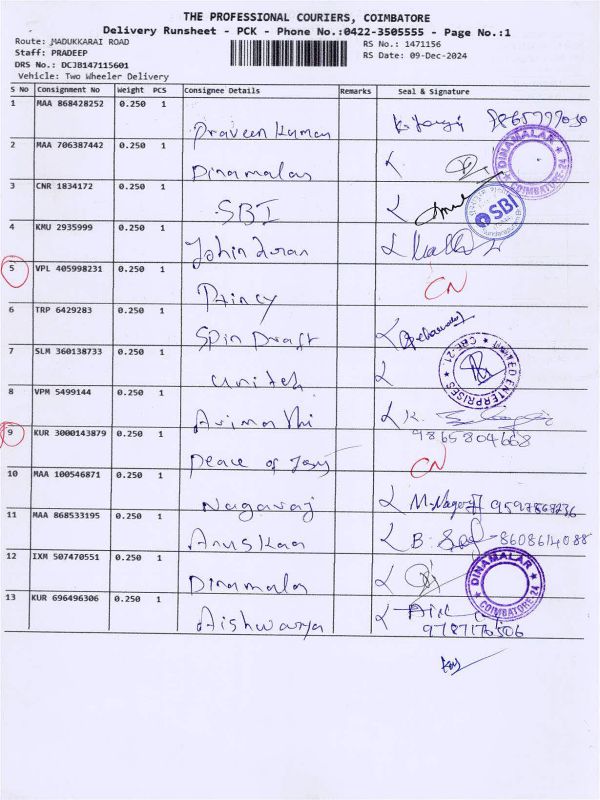 THE PROFESSIONAL COURIERS, COIMBATORE
Delivery Runsheet - PCK - Phone No.:0422-3505555 - Page No.:1
Route: MADUKKARAI ROAD
RS No.: 1471156
Staff: PRADEEP
RS Date: 09-Dec-2024
DRS No.: DCJB147115601
Vehicle: Two Wheeler Delivery
S No Consignment No Weight PCS Consignee Details Remarks Seal & Signature
1 MAA 868428252 0.250 1 Praveen kumar
2 MAA 706387442 0.250 1 Dinamalar DINAMALAR COIMBATORE-24
3 CNR 1834172 0.250 1 SBI SBI
4 KMU 2935999 0.250 1
5 VPL 405998231 0.250 1 Princy CN
6 TRP 6429283 0.250 1 Spin Draft
7 SLM 360138733 0.250 1 Unitek UNITED ENTERPRISES CBE-21
8 VPM 5499144 0.250 1 K. 9865804668
9 KUR 3000143879 0.250 1 Peace of Joy CN
10 MAA 100546871 0.250 1 Nagaraj M. Nagaraj
11 MAA 868533195 0.250 1 B. 8608614088
12 IXM 507470551 0.250 1 Dinamalar DINAMALAR COIMBATORE-24
13 KUR 696496306 0.250 1 Aishwarya 9787176506